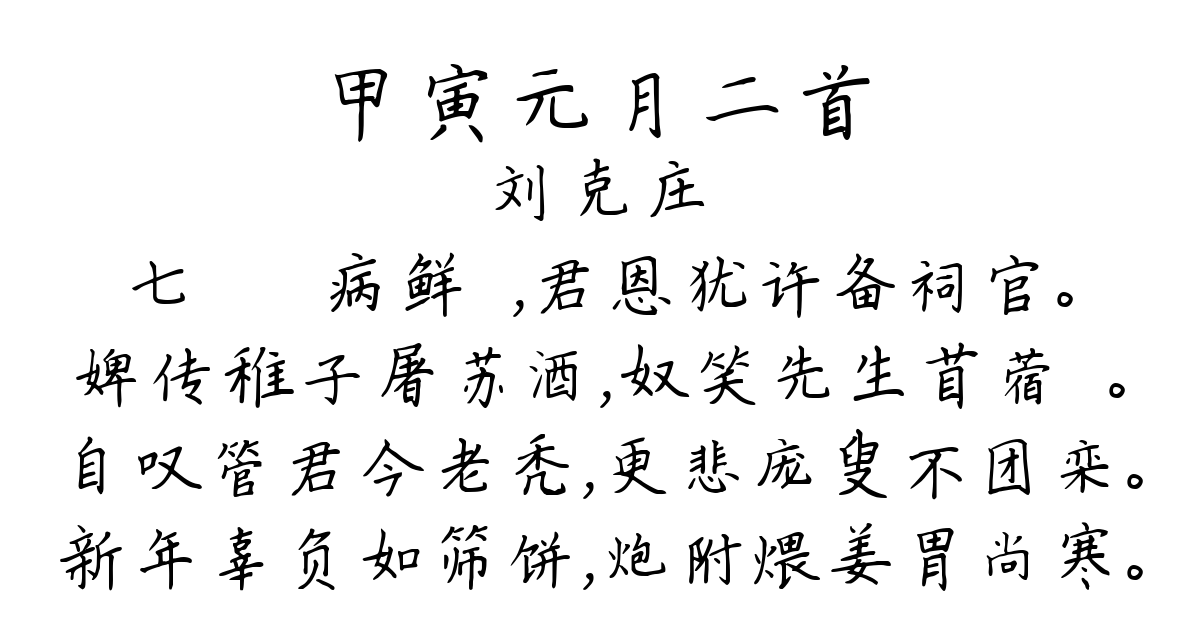 甲寅元月二首
刘克庄
七 病鲜 ,君恩犹许备祠官。
婢传稚子屠苏酒,奴笑先生苜蓿 。
自叹管君今老秃,更悲庞叟不团栾。
新年辜负如筛饼,炮附煨姜胃尚寒。